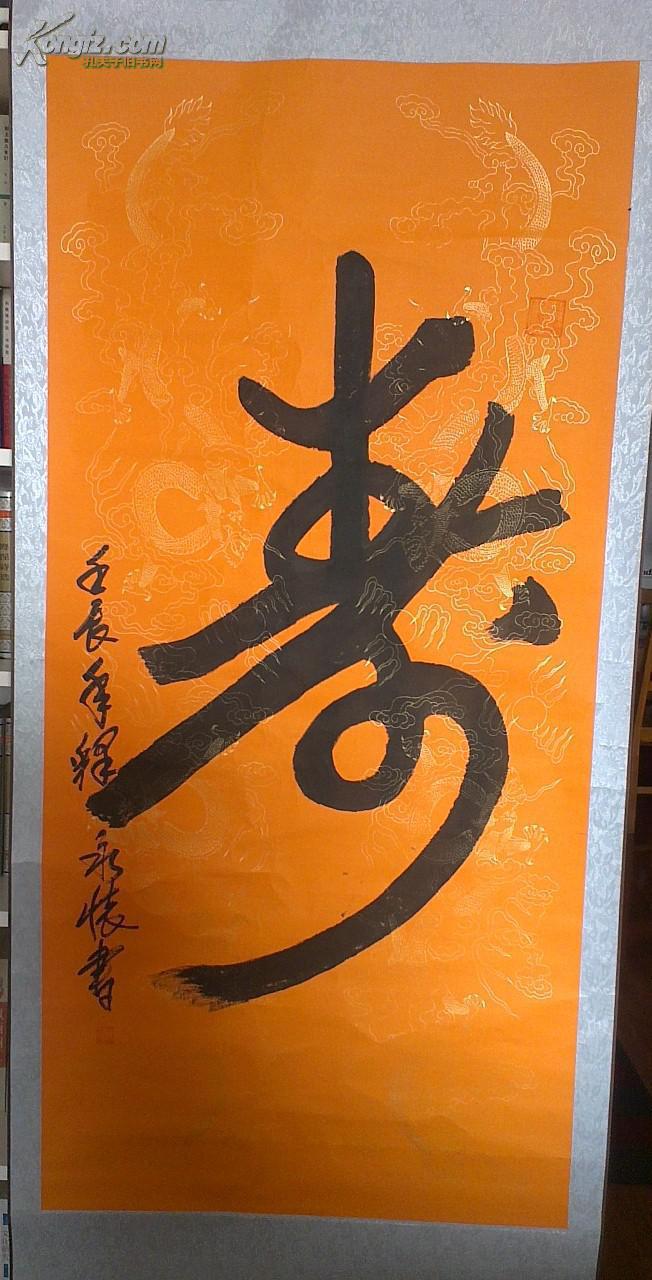 Kongfz.com
孔夫子旧书网
寿
壬辰年释永怀书